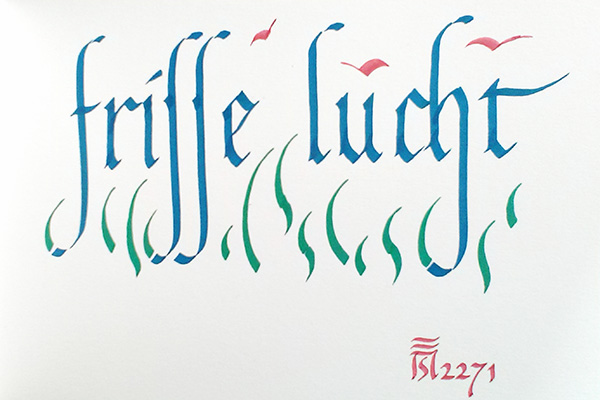 friſſe lucht
2271